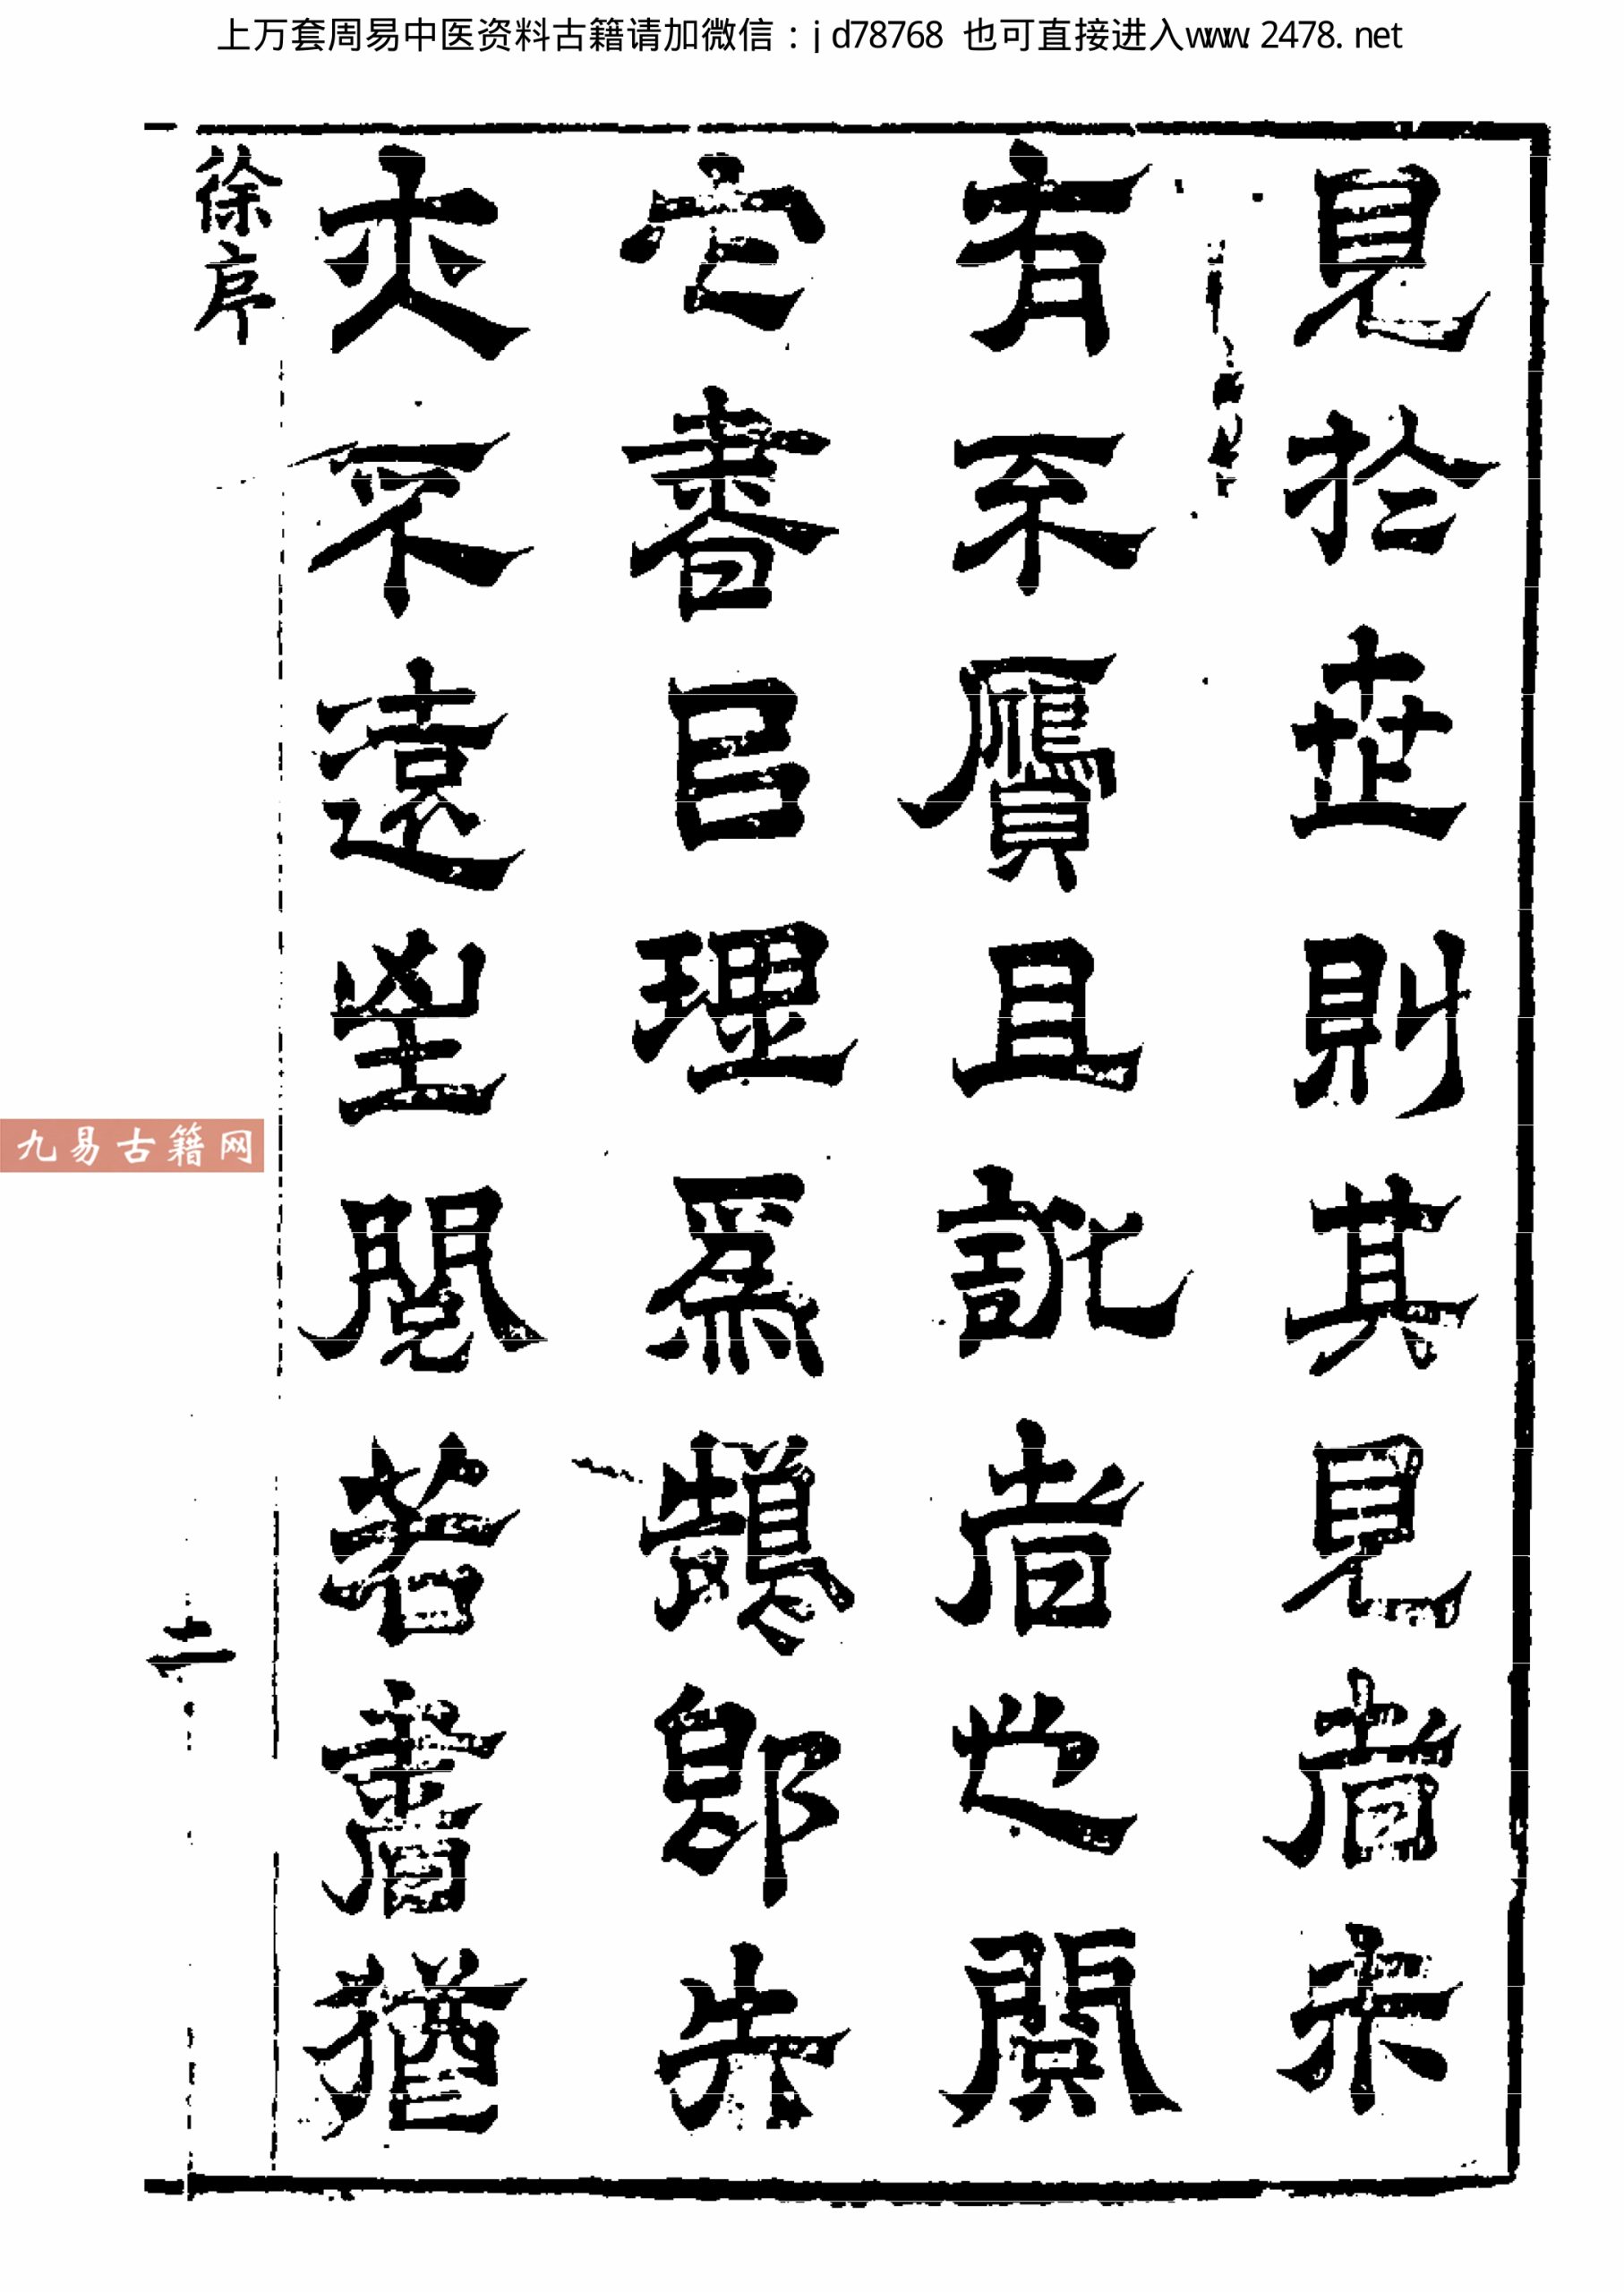 上万套周易中医资料古籍请加微信：jd78768 也可直接进入www.2478.net
見於世則其見者未
有不贗且訛者也閱
它書㠯理爲鵠郎先
夾不遠望閱若書猶
徐序
二
九易古籍网